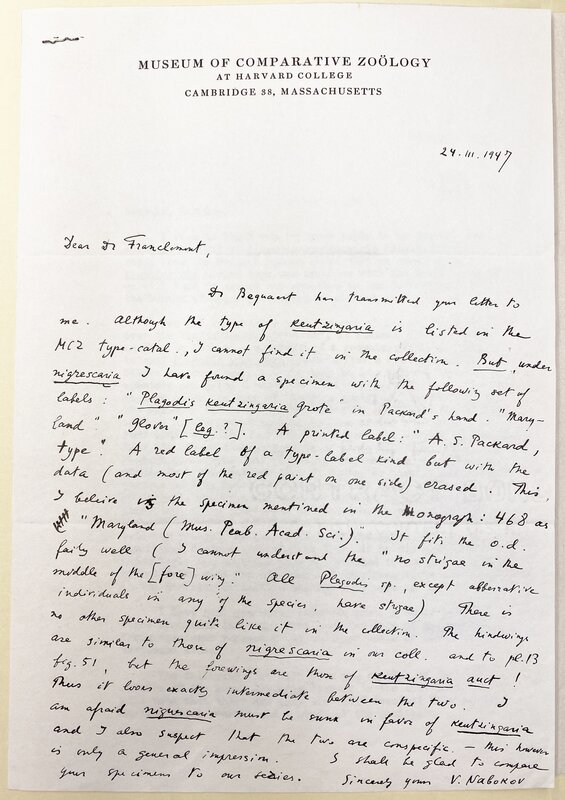 MUSEUM OF COMPARATIVE ZOÖLOGY
AT HARVARD COLLEGE
CAMBRIDGE 38, MASSACHUSETTS
24.III.1947
Dear Dr Franclemont,
Dr Bequaert has transmitted your letter to
me. Although the type of keutzingaria is listed in the
MCZ type-catal., I cannot find it in the collection. But, under
nigrescaria I have found a specimen with the following set of
labels: "Plagodis keutzingaria Grote" in Packard's hand. "Mary-
land" "Glover" [leg.?]. A printed label: "A. S. Packard,
type". A red label of a type-label kind but with the
data (and most of the red paint on one side) erased. This,
I believe is the specimen mentioned in the Monograph: 468 as
"Maryland (Mus. Peab. Acad. Sci.)" It fits the o.d.
fairly well (I cannot understand the "no strigae in the
middle of the [fore] wing". All Plagodis sp., except abberrative
individuals in any of the species, have strigae) There is
no other specimen quite like it in the collection. The hindwings
are similar to those of nigrescaria in our coll. and to pl.13
fig. 51, but the forewings are those of keutzingaria auct!
Thus it looks exactly intermediate between the two. I
am afraid nigrescaria must be sunk in favor of keutzingaria
and I also suspect that the two are conspecific – this however
is only a general impression. I shall be glad to compare
your specimens to our series. Sincerely yours V. Nabokov